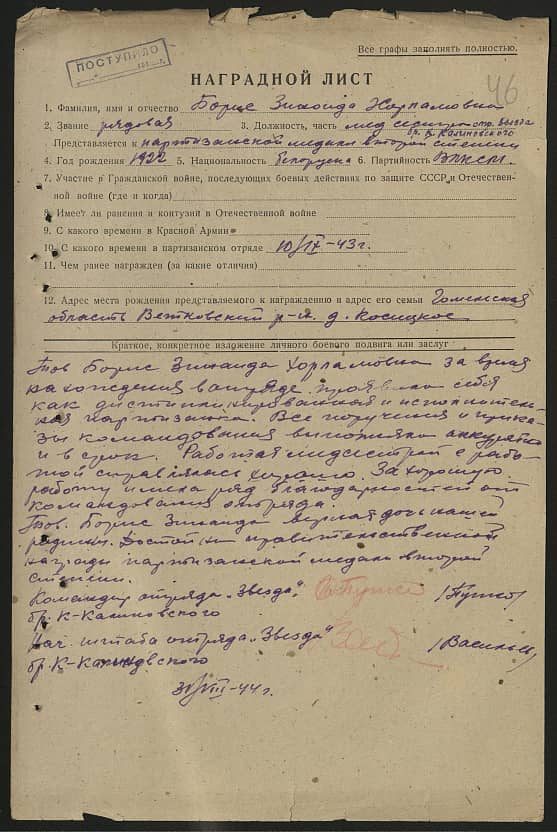 Все графы заполнять полностью.
ПОСТУПИЛО
46
НАГРАДНОЙ ЛИСТ
1. Фамилия, имя и отчество Борис Зинаида Харламовна
2. Звание рядовая 3. Должность, часть мед сестра отр. Звезда
бр. К. Калиновского
Представляется к партизанской медали второй степени
4. Год рождения 1922 5. Национальность белоруска 6. Партийность ВЛКСМ.
7. Участие в Гражданской войне, последующих боевых действиях по защите СССР и Отечествен-
ной войне (где и когда)
8. Имеет ли ранения и контузии в Отечественной войне
9. С какого времени в Красной Армии
10. С какого времени в партизанском отряде 10/IX-43 г.
11. Чем ранее награжден (за какие отличия)
12. Адрес места рождения представляемого к награждению и адрес его семьи Гомельская
область Ветковский р-н. д. Косицкое
Краткое, конкретное изложение личного боевого подвига или заслуг
Тов. Борис Зинаида Харламовна за время
нахождения в отряде проявила себя
как дисциплинированная и исполнитель-
ная партизанка. Все поручения и прика-
зы командования выполняла аккуратно
и в срок. Работая медсестрой с рабо-
той справлялась хорошо. За хорошую
работу имела ряд благодарностей от
командования отряда.
Тов. Борис Зинаида верная дочь нашей
родины. Достойна правительственной
награды партизанской медали второй
степени.
Командир отряда „Звезда"
бр. К-Калиновского
Нач. штаба отряда „Звезда"
бр. К-Калиновского
31/VIII-44 г.